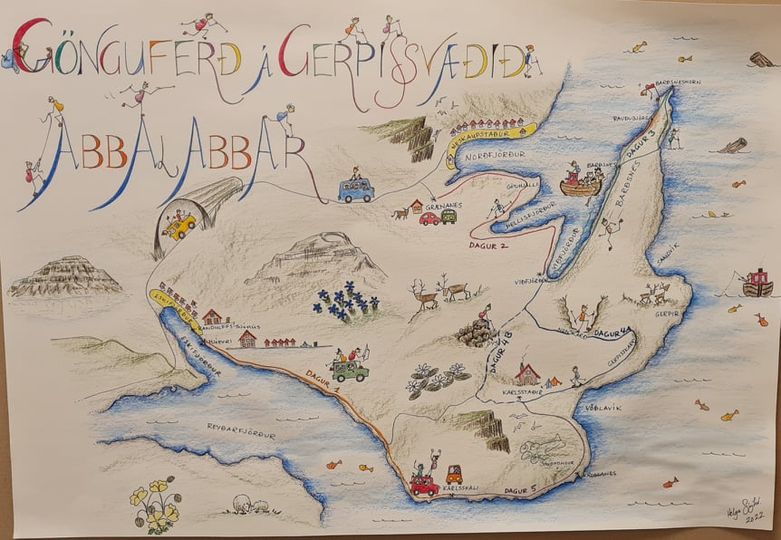 GÖNGUFERÐ Á GERPISSVÆÐIÐ
ABBALABBAR
BARÐSNESHORN
RAUÐUBJÖRG
DAGUR 3
NESKAUPSTAÐUR
NORÐFJÖRÐUR
BARÐSNES
GRÆNANES
HELLISFJÖRÐUR
DAGUR 2
VIÐFJÖRÐUR
VIÐFJÖRÐUR
SANDVÍK
GERPIR
ESKIFJÖRÐUR
RANDULFFS-SJÓHÚS
ESKIFJÖRÐUR
DAGUR 4A
DAGUR 4B
DAGUR 1
KARLSSTAÐIR
VÖÐLAVÍK
REYÐARFJÖRÐUR
KARLSSKÁLI
DAGUR 5
Helga
2022